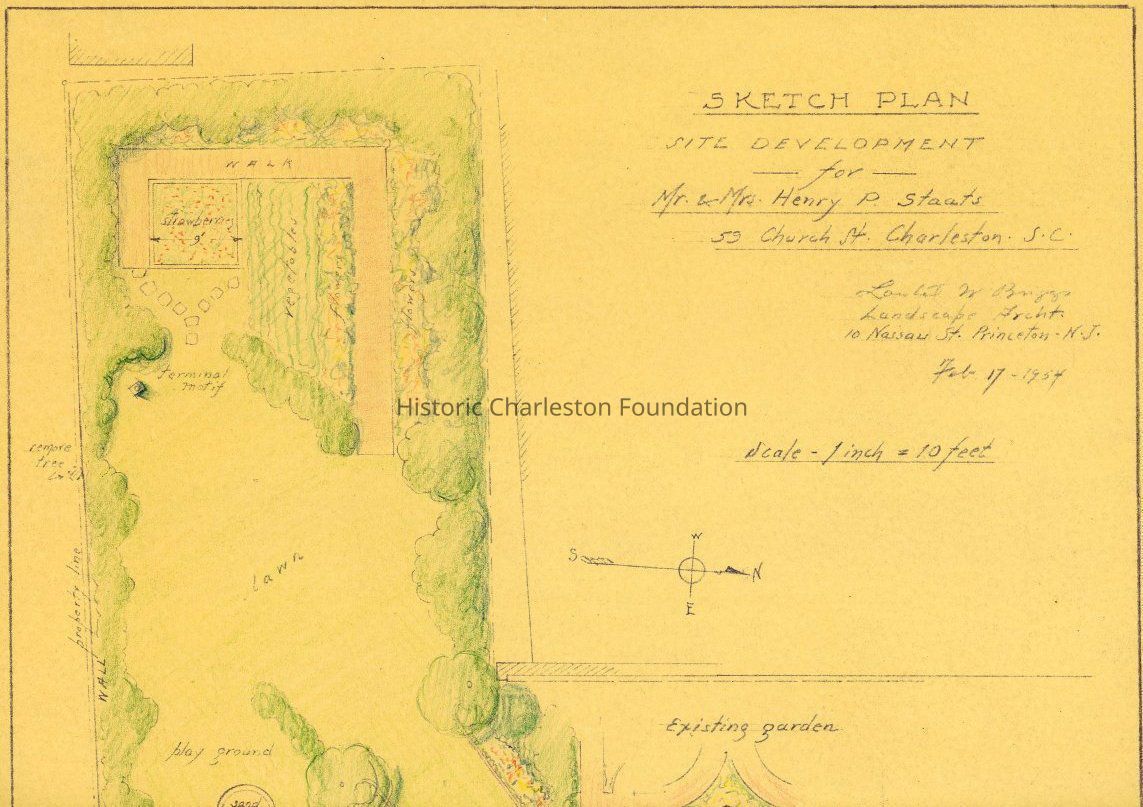 SKETCH PLAN
SITE DEVELOPMENT
for
Mr. & Mrs. Henry P. Staats
59 Church St. Charleston. S.C.
W Briggs
Landscape Archt.
10 Nassau St. Princeton - N.J.
Feb 17 - 1954
Scale - 1 inch = 10 feet
W
S
N
E
WALK
strawberries
9'
vegetables
flowers
flowers
terminal
motif
remove
tree
Historic Charleston Foundation
lawn
property line
WALL
play ground
sand
Existing garden